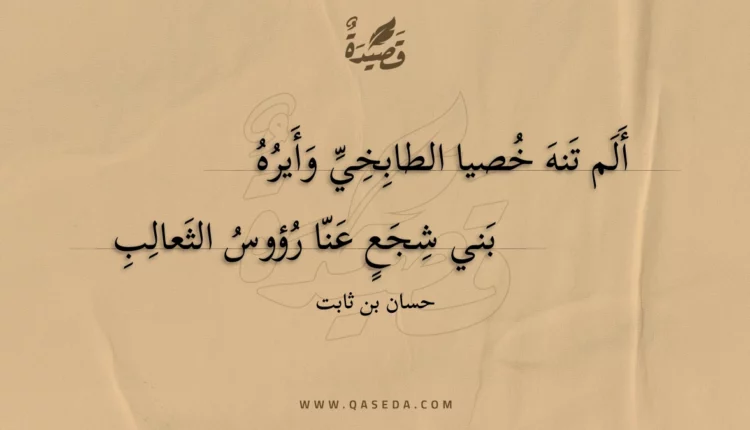 قَصِيْدَةٌ
أَلَم تَنهَ خُصيا الطابِخِيِّ وَأَيرُهُ
بَني شِجَعٍ عَنّا رُؤوسُ الثَعالِبِ
حسان بن ثابت
WWW.QASEDA.COM